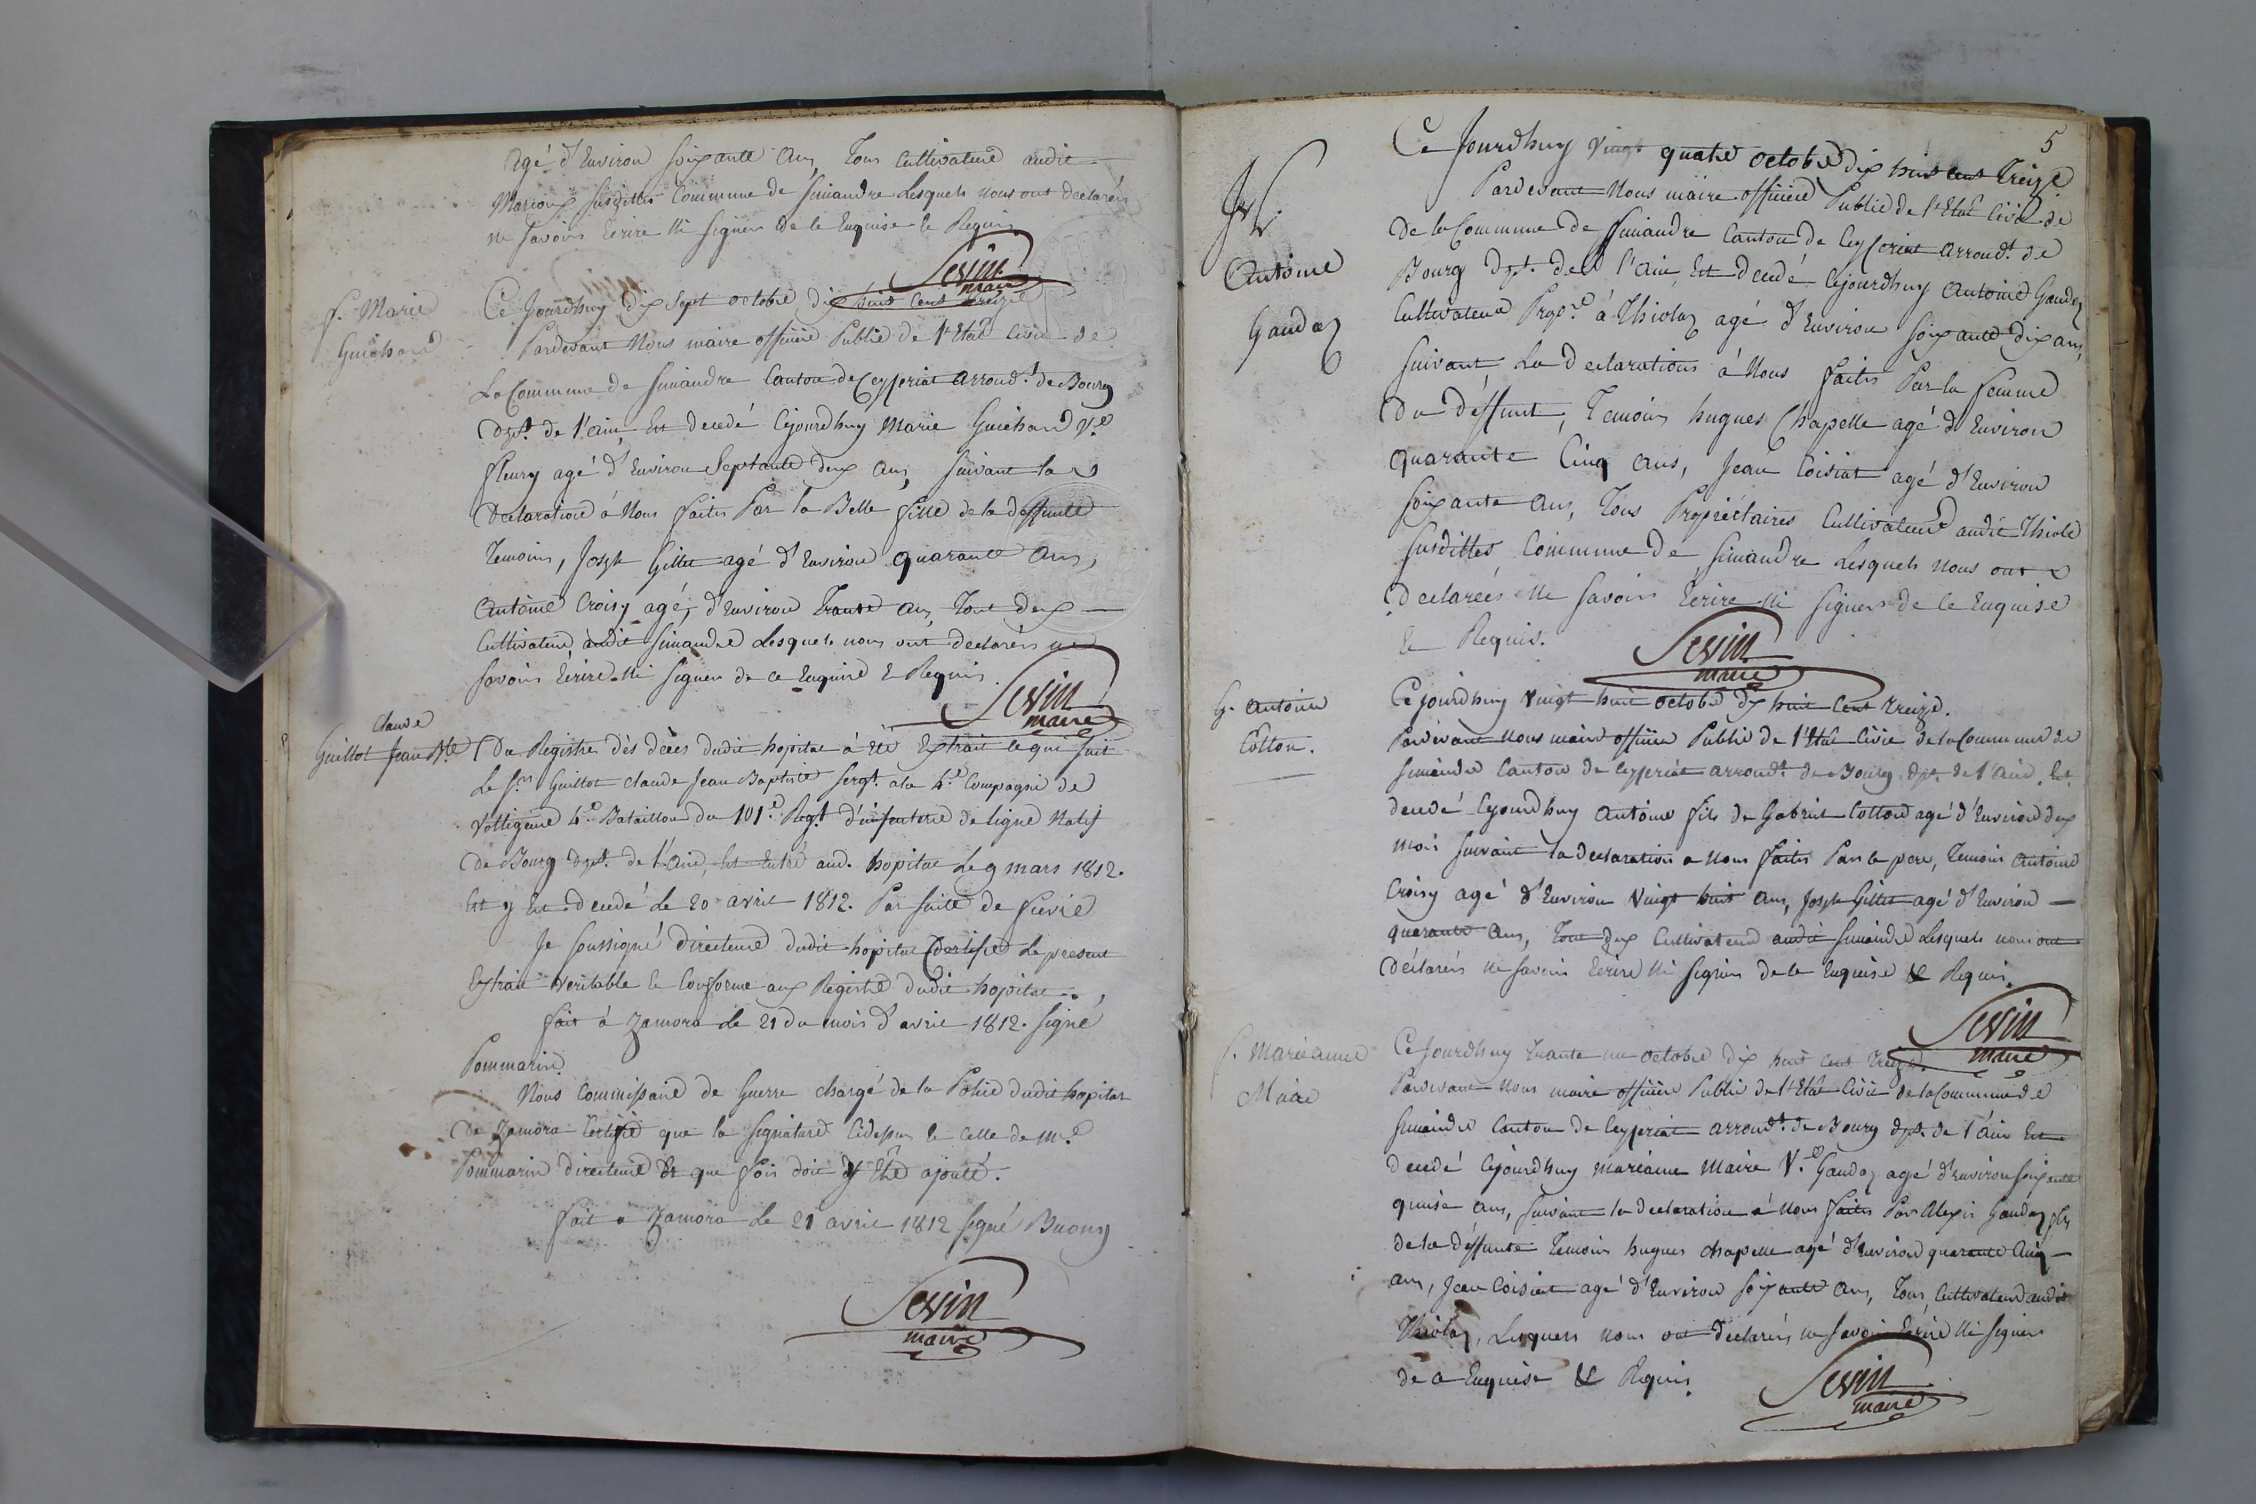 agé d'Environ soixante ans, Tous Cultivateurs audit
Marioux susdittes Commune de Simandre Lesquels nous ont declarés
ne savoir Ecrire Ni signer de ce Enquise et Requis
Sevin
maire
f. Marie
Guichard
Ce Jourdhuy dix sept octobre dix huit cent treize
Pardevant Nous maire officier Public de l'Etat Civil de
La Commune de Simandre Canton de Ceyseriat arrond.t de Bourg
Dpt. de l'ain, Est decedé Cejourdhuy Marie Guichard V.e
fleury agé d'Environ Septante deux ans, suivant la
Declaration à Nous faites Par la Belle fille de la deffunte
Temoins, Joseph Gillet agé d'Environ quarante ans,
Antoine Croisy agé, d'Environ Trante ans, Tout deux
Cultivateurs audit Simandre Lesquels nous ont declarés ne
savoir Ecrire Ni signer de ce Enquise & Requis
Sevin
maire
Claude
Guillot Jean B.te
Du Registre dès dèces dudit hopital à Eté Extrait ce qui suit
Le S.r Guillot Claude Jean Baptiste Sergt. a la 4.e Compagnie de
Voltigeurs 4.e Bataillon du 101.e Regt. d'infanterie de ligne Natif
de Bourg dpt. de l'Ain, Est Entré aud. hopital Le 9 mars 1812.
Et y Est decedé le 20 avril 1812. Par suite de fievre
Je soussigné directeur dudit hopital Certifie Le present
Extrait Veritable & Conforme aux Registre dudit hopital
fait à Zamora Le 21 du mois d'avril 1812. signé
Pommarin
Nous Commissaire de Guerre chargé de la Police dudit hopital
de Zamora Certifie que la signature Cidessus Est Celle de m.r
Pommarin directeur Et que fois doit y Etre ajouté.
fait a Zamora Le 21 avril 1812 signé Buony
Sevin
maire
5
Antoine
Gaudoz
Ce Jourdhuy Vingt quatre octobre dix huit cent Treize
Pardevant Nous maire officier Public de l'Etat Civil de
de la Commune de Simandre Canton de Ceyseriat arrond.t de
Bourg dpt. de l'ain, Est decedé Cejourdhuy Antoine Gaudoz
Cultivateur Prop.re à Thiolaz agé d'Environ soixante dix ans,
suivant La declarations à Nous faites Par la femme
du deffunt, Temoins hugues Chapelle agé d'Environ
quarante Cinq ans, Jean Coisiat agé d'Environ
soixante ans, Tous Propriétaires Cultivateurs audit Thiole
susdittes Commune de Simandre Lesquels nous ont
declarées ne savoir Ecrire Ni signer de ce Enquise
& Requis.
Sevin
maire
G. Antoine
Cotton.
Cejourdhuy Vingt huit octobre dix huit Cent treize.
Pardevant nous maire officier Public de l'Etat Civil de la Commune de
Simandre Canton de Ceyseriat arrondt. de Bourg dpt. de l'Ain, Est
decedé Cejourdhuy Antoine fils de Gabriel Cotton agé d'Environ deux
mois suivant la declaration a nous faites Par le pere, Temoins Antoine
Croisy agé d'Environ Vingt huit ans, Joseph Gillet agé d'Environ
quarante ans, Tout deux Cultivateurs audit Simandre Lesquels nous ont
déclarés ne savoir Ecrire Ni signer de ce Enquise & Requis.
Sevin
maire
f. Marieanne
Maire
Ce Jourdhuy trante un octobre dix huit cent treize.
Pardevant nous maire officier Public de l'Etat Civil de la Commune de
Simandre Canton de Ceyseriat arrondt. de Bourg dpt. de l'Ain Est
decedé Cejourdhuy marieanne Maire V.e Gaudoz agé d'Environ soixante
quinse ans, suivant la declaration à Nous faites Par Alexis Gaudoz fils
de la deffunte Temoins hugues chapelle agé d'Environ quarante Cinq
ans, Jean Coisiat agé d'Environ soixante ans, Tous Cultivateurs audit
Thiolaz, Lesquels nous ont declarés ne savoir Ecrire Ni signer
de ce Enquise & Requis.
Sevin
maire